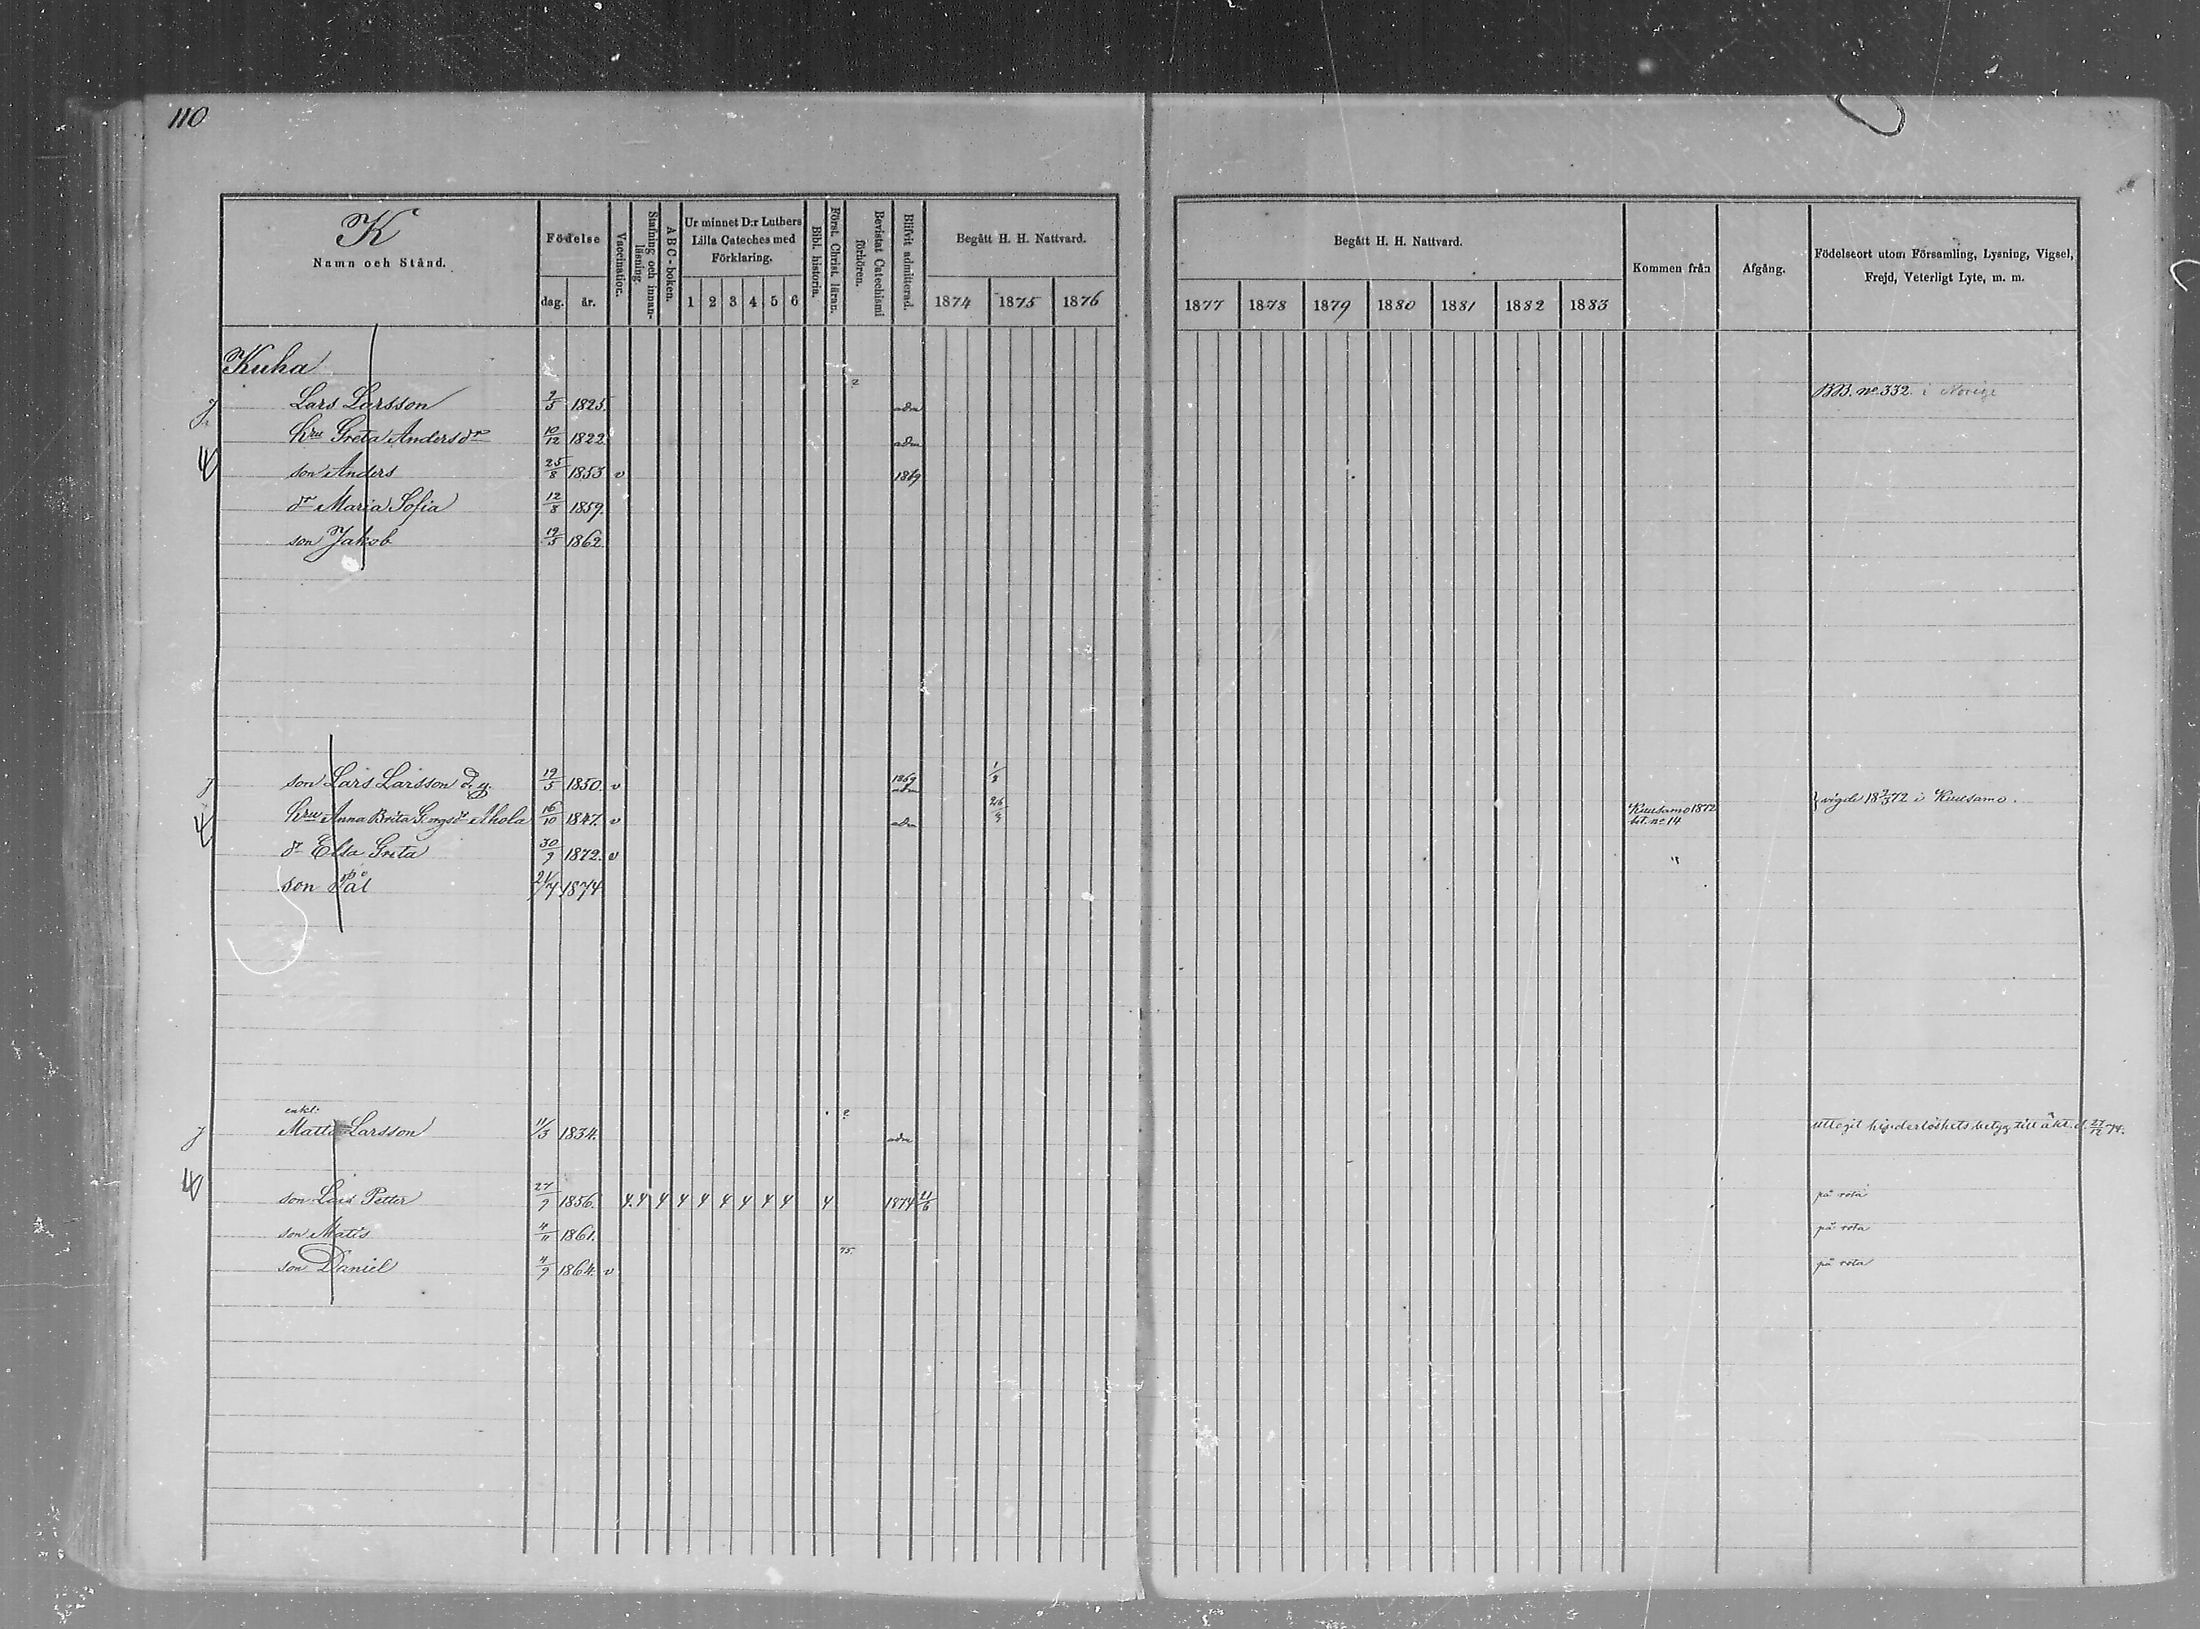 110
K
Namn och Stånd.
Födelse
dag. år.
Vaccination.
Stafning och innan-läsning.
A B C-boken.
Ur minnet D:r Luthers Lilla Cateches med Förklaring.
1 2 3 4 5 6
Bibl. historia.
Först. Christ. läran.
Bevistat Catechismi förhören.
Blifvit admitterad.
Begått H. H. Nattvard.
1874 1875 1876
Begått H. H. Nattvard.
1877 1878 1879 1880 1881 1882 1883
Kommen från
Afgång.
Födelseort utom Församling, Lysning, Vigsel, Frejd, Veterligt Lyte, m. m.
Kuha
Lars Larsson 2/5 1825. adm BB. no 332. i Norige
hru Greta Andersdr 10/12 1822 adm
son Anders 25/8 1853 v 1869
dr Maria Sofia 12/8 1859.
son Jakob 19/5 1862.
son Lars Larsson d. y. 19/5 1850. v 1869 adm 1/8
hru Anna Brita dr Ahola 16/10 1847. v adm 26/9 Kuusamo 1872 bet. no 14 } vigde 18 2/3 72 i Kuusamo.
dr Elsa Greta 30/9 1872. v "
son Pål 21/7 1874
enkl:
Matts Larsson 11/3 1834. adm uttagit hinderlöshets betyg till äkt. d. 27/12 74.
son Lars Petter 27/9 1856. 4. 4 4 4 4 4 4 4 4 4 1874 21/6 på rota
son Matts 4/11 1861. på rota
75.
son Daniel 4/9 1864. v på rota